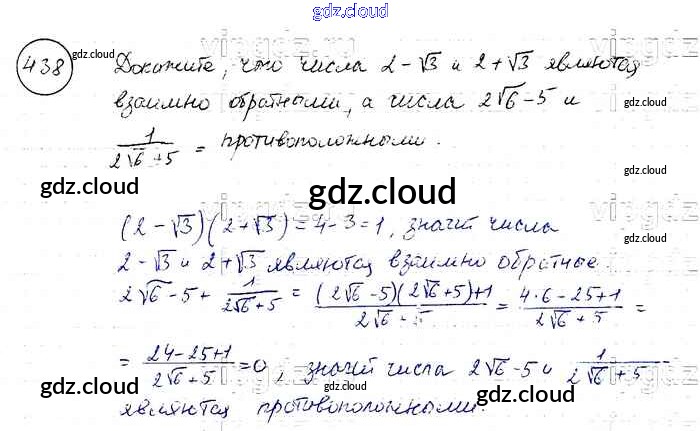 gdz.cloud
438 gdz.cloud Докажите, что числа 2-√3 и 2+√3 являются
взаимно обратными, а числа 2√6-5 и
1/(2√6+5) = противоположными.
gdz.cloud
gdz.cloud
gdz.cloud
gdz.cloud
(2-√3)(2+√3)=4-3=1, значит числа
2-√3 и 2+√3 являются взаимно обратные.
2√6-5+1/(2√6+5) = ((2√6-5)(2√6+5)+1)/(2√6+5) = (4·6-25+1)/(2√6+5) =
gdz.cloud
gdz.cloud
= (24-25+1)/(2√6+5)=0, значит числа 2√6-5 и 1/(2√6+5)
gdz.cloud
gdz.cloud
gdz.cloud
являются противоположными.